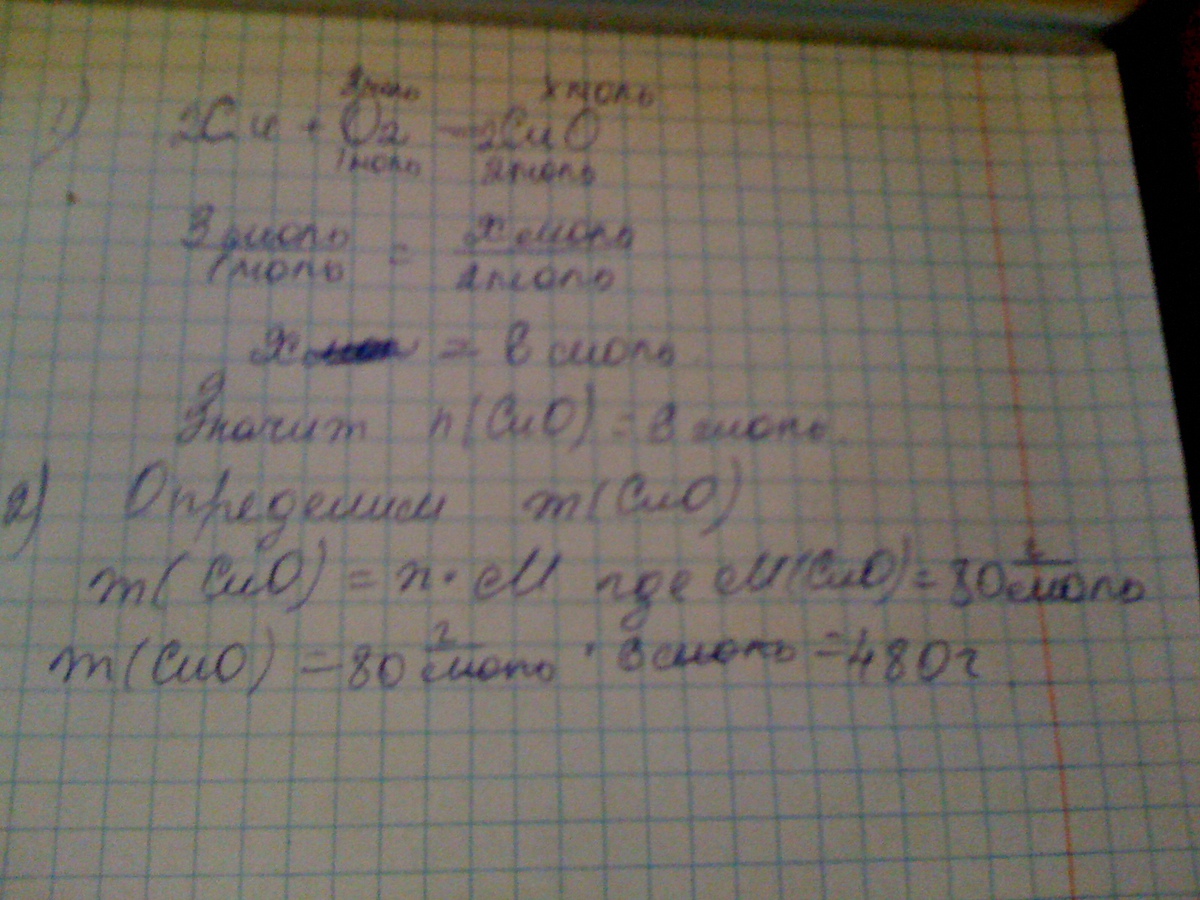 3 моль x моль
1) 2Cu + O2 — 2CuO
1 моль 2 моль
3 моль / 1 моль = x моль / 2 моль
x = 6 моль
Значит n(CuO) = 6 моль.
2) Определим m(CuO)
m(CuO) = n · M где M(CuO) = 80 г/моль
m(CuO) = 80 г/моль · 6 моль = 480г